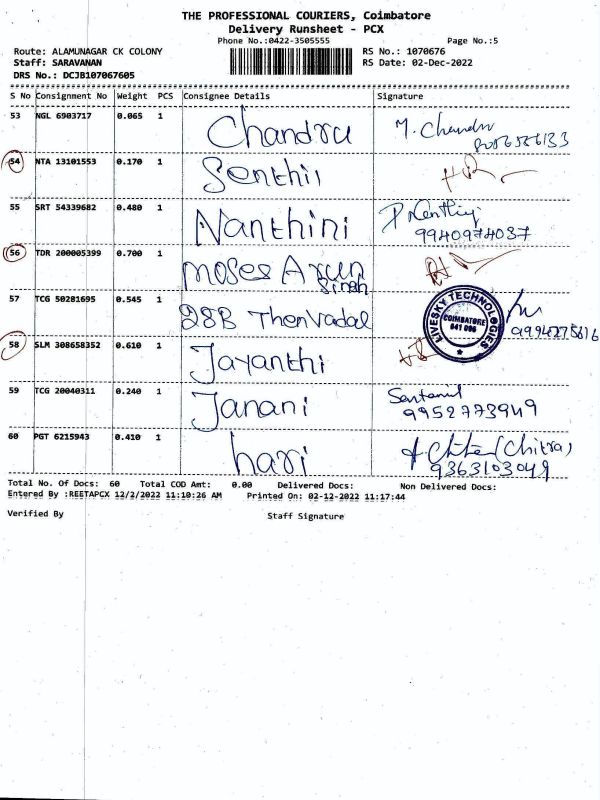 THE PROFESSIONAL COURIERS, Coimbatore
Delivery Runsheet - PCX
Phone No.:0422-3505555 Page No.:5
Route: ALAMUNAGAR CK COLONY RS No.: 1070676
Staff: SARAVANAN RS Date: 02-Dec-2022
DRS No.: DCJB107067605
S No Consignment No Weight PCS Consignee Details Signature
53 NGL 6903717 0.065 1 Chandru M. Chandru
54 NTA 13101553 0.170 1 Senthil
55 SRT 54339682 0.480 1 Nanthini
9940974037
56 TDR 200005399 0.700 1 Moses Arun
Singh
57 TCG 50281695 0.545 1 28B Thenvadal
LIVESKY TECHNOLOGIES
COIMBATORE
641 006
58 SLM 308658352 0.610 1 Jayanthi
59 TCG 20040311 0.240 1 Janani
9952773949
60 PGT 6215943 0.410 1 hari (Chitra)
9363103049
Total No. Of Docs: 60 Total COD Amt: 0.00 Delivered Docs: Non Delivered Docs:
Entered By :REETAPCX 12/2/2022 11:10:26 AM Printed On: 02-12-2022 11:17:44
Verified By Staff Signature